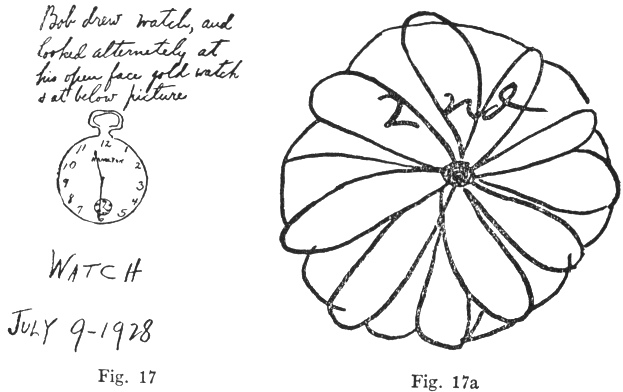 Bob drew watch, and
looked alternetely at
his open face gold watch
& at below picture
12
11 1
10 2
9 3
8 4
7 5
6
WATCH
JULY 9-1928
Fig. 17
2 nd
Fig. 17a